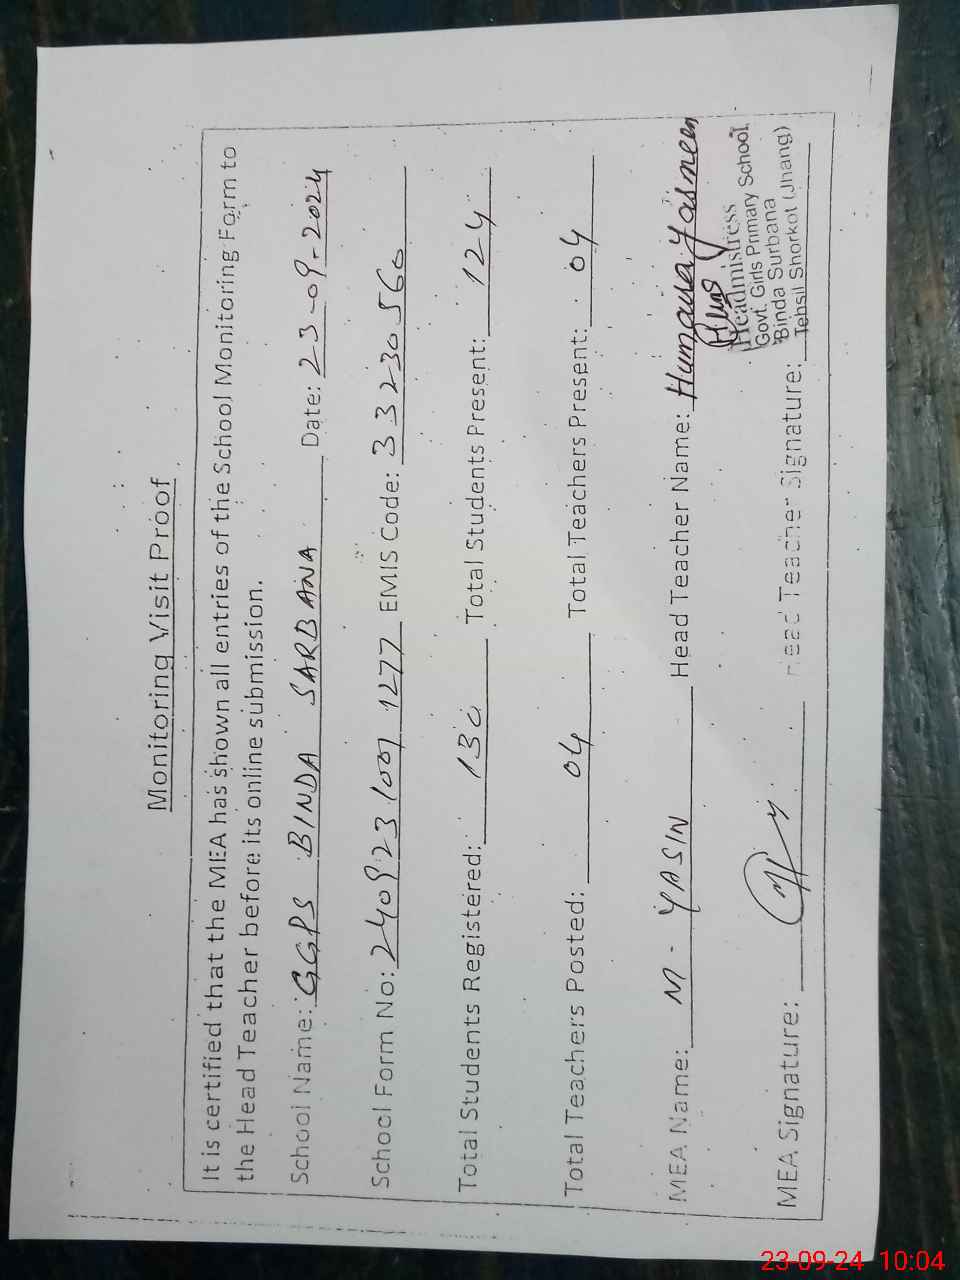 Monitoring Visit Proof
It is certified that the MEA has shown all entries of the School Monitoring Form to
the Head Teacher before its online submission.
School Name: GGPS BINDA SARBANA Date: 23-09-2024
School Form No: 240923 1001 1277 EMIS Code: 33230560
Total Students Registered: 130 Total Students Present: 124
Total Teachers Posted: 04 Total Teachers Present: 04
MEA Name: M. YASIN Head Teacher Name: Humaira Yasmeen
MEA Signature: Head Teacher Signature:
Headmistress
Govt. Girls Primary School
Binda Surbana
Tehsil Shorkot (Jhang)
23-09-24 10:04